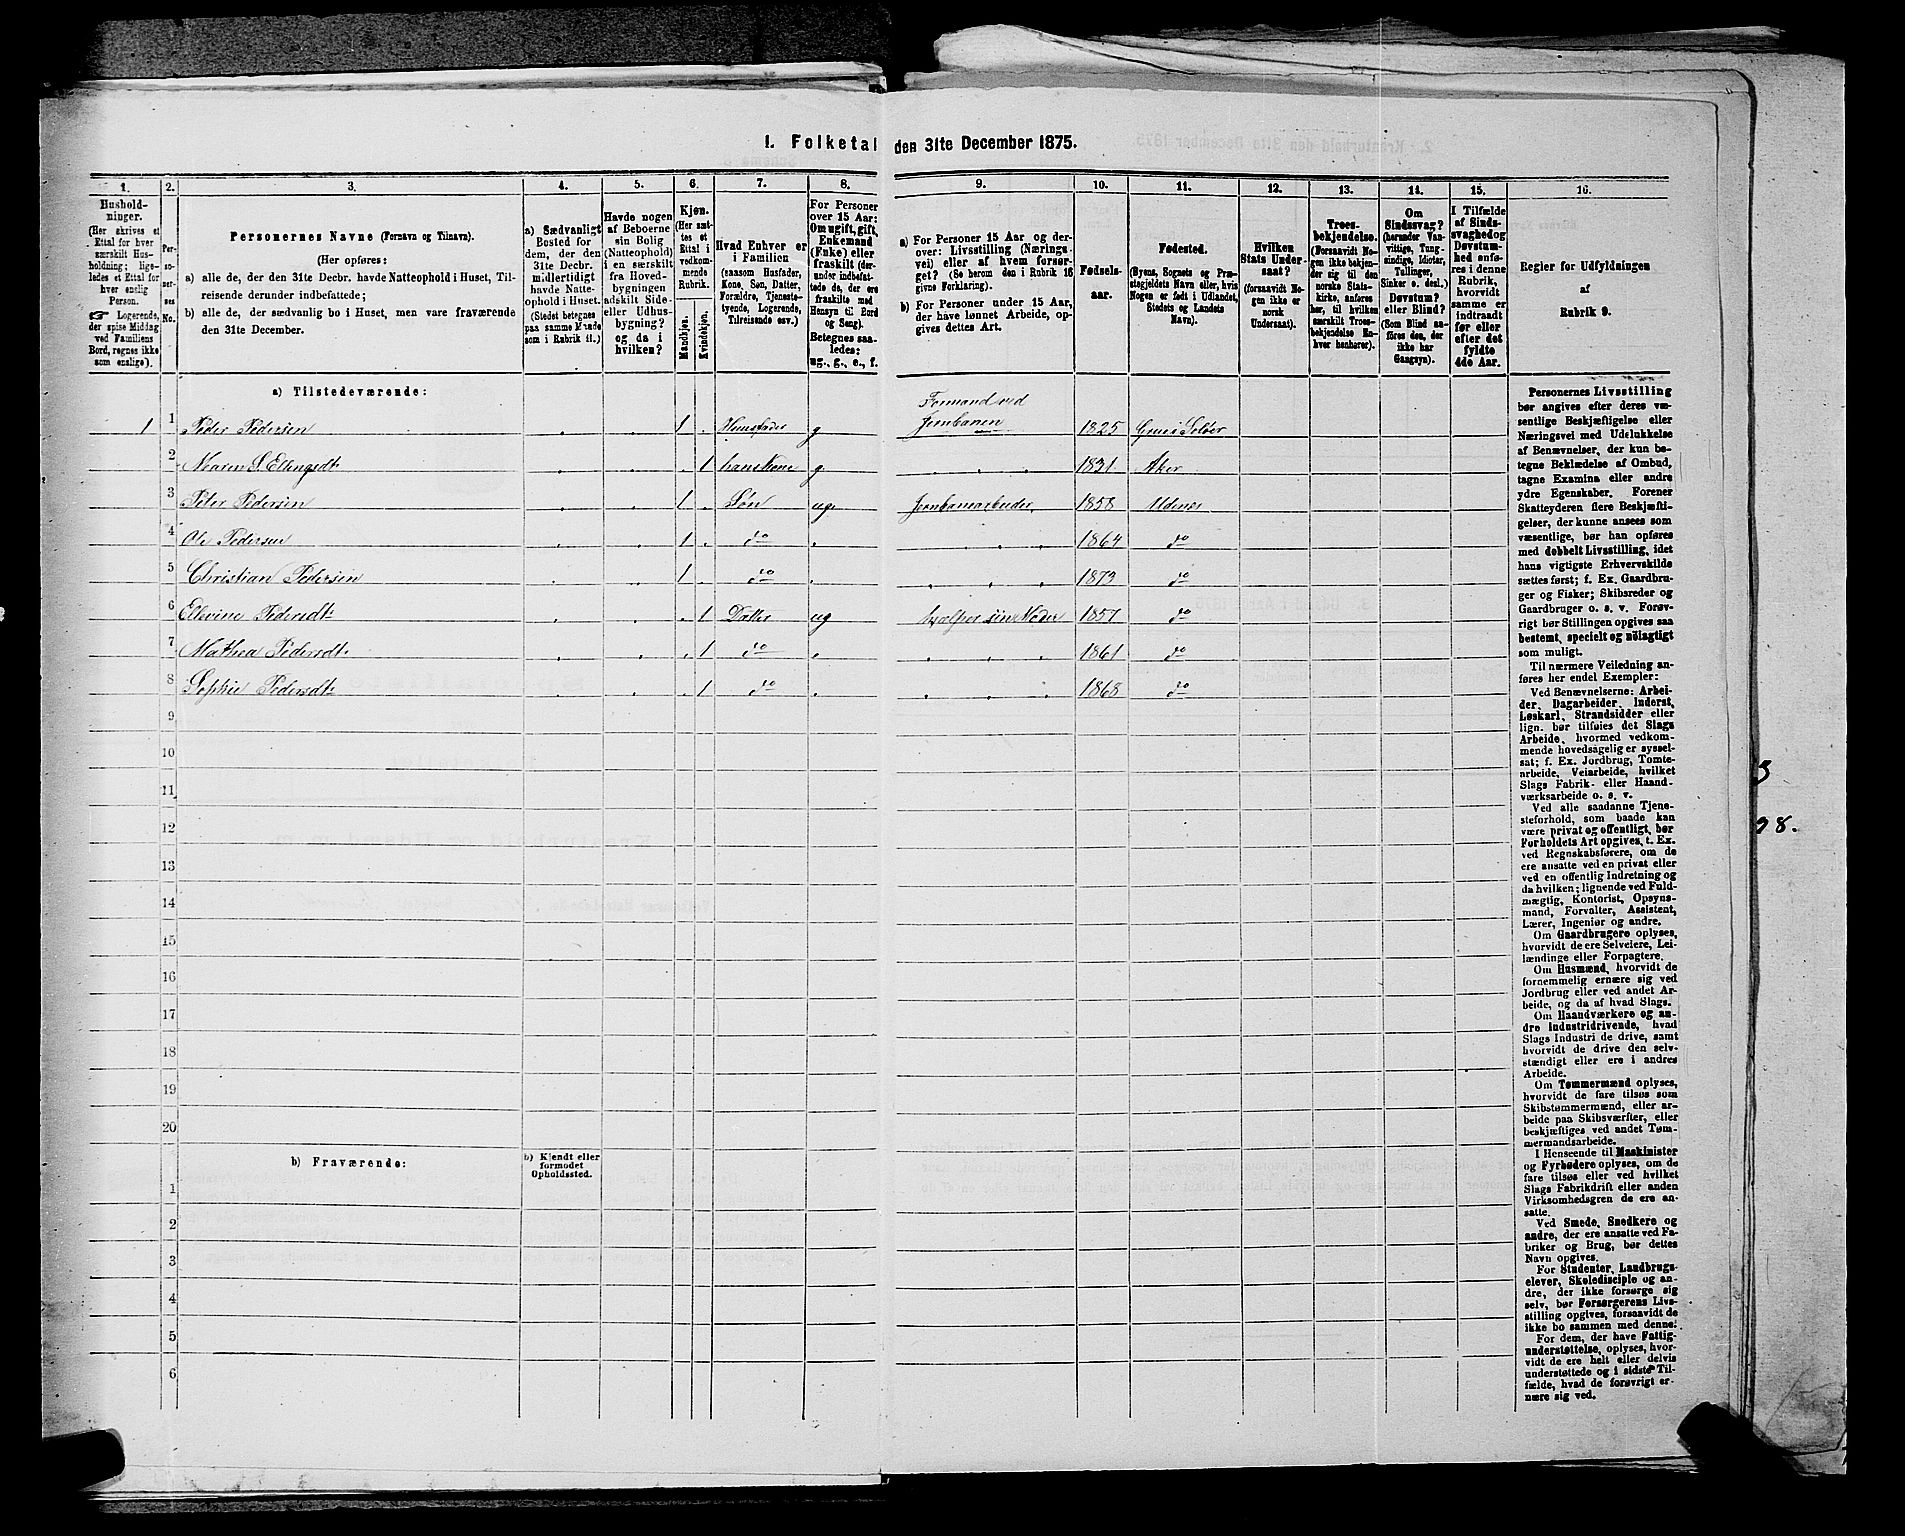 1. Folketal den 31te December 1875.
1.
2.
3.
4.
5.
6.
7.
8.
9.
10.
11.
12.
13.
14.
15.
16.
Hushold-
ninger.
(Her skrives et
Ettal for hver
særskilt Hus-
holdning; lige-
ledes et Ettal for
hver enslig
Person.
☞ Logerende,
der spise Middag
ved Familiens
Bord, regnes ikke
som enslige).
Per-
so-
ner-
nes
No.
Personernes Navne (Fornavn og Tilnavn).
(Her opføres:
a) alle de, der den 31te Decbr. havde Natteophold i Huset, Til-
reisende derunder indbefattede;
b) alle de, der sædvanlig bo i Huset, men vare fraværende
den 31te December.
a) Sædvanligt
Bosted for
dem, der den
31te Decbr.
midlertidigt
havde Natte-
ophold i Huset.
(Stedet betegnes
paa samme Maade
som i Rubrik 11.)
Havde nogen
af Beboerne
sin Bolig
(Natteophold)
i en særskilt
fra Hoved-
bygningen
adskilt Side-
eller Udhus-
bygning?
og da i
hvilken?
Kjøn.
(Her sæt-
tes et
Ettal i
vedkom-
mende
Rubrik.
Mandkjøn.
Kvindekjøn.
Hvad Enhver er
i Familien
(saasom Husfader,
Kone, Søn, Datter,
Forældre, Tjeneste-
tyende, Logerende,
Tilreisende osv.)
For Personer
over 15 Aar:
Om ugift, gift,
Enkemand
(Enke) eller
fraskilt (der-
under indbefat-
tede de, der ere
fraskilte med
Hensyn til Bord
og Seng).
Betegnes saa-
ledes:
ug., g., e., f.
a) For Personer 15 Aar og der-
over: Livsstilling (Nærings-
vei) eller af hvem forsør-
get? (Se herom den i Rubrik 16
givne Forklaring).
b) For Personer under 15 Aar,
der have lønnet Arbeide, op-
gives dettes Art.
Fødsels-
aar.
Fødested.
(Byens, Sognets og Præ-
stegjeldets Navn eller, hvis
Nogen er født i Udlandet,
Stedets og Landets
Navn).
Hvilken
Stats Under-
saat?
(forsaavidt No-
gen ikke er
norsk
Undersaat).
Troes-
bekjendelse.
(Forsaavidt No-
gen ikke bekjen-
der sig til den
norske Stats-
kirke, anføres
her, til hvilken
særskilt Troes-
bekjendelse En-
hver henhører).
Om
Sindssvag?
(herunder Van-
vittige, Tung-
sindige, Idioter,
Tullinger,
Sinker o. desl.)
Døvstum?
eller Blind?
(Som Blind an-
føres den, der
ikke har
Gangsyn).
I Tilfælde
af Sinds-
svaghed og
Døvstum-
hed anfø-
res i denne
Rubrik,
hvorvidt
samme er
indtraadt
før eller
efter det
fyldte
4de Aar.
Regler for Udfyldningen
af
Rubrik 9.
a) Tilstedeværende:
1 1 Peder Pedersen 1 Huusfader g Formand ved
Jernbanen 1825 Grue i Solør
2 Maren S. Ellingsdt: 1 hans Kone g 1831 Aker
3 Peter Pedersen 1 Søn ug. Jernbanearbeider 1858 Udenes
4 Ole Pedersen 1 do 1864 do
5 Christian Pedersen 1 do 1873 do
6 Ellevine Pedersdt: 1 Datter ug hjælper sin Moder 1857 do
7 Mathea Pedersdt: 1 do 1861 do
8 Sophie Pedersdt: 1 do 1868 do
9
10
11
12
13
14
15
16
17
18
19
20
b) Fraværende:
b) Kjendt eller
formodet
Opholdssted.
1
2
3
4
5
6
Personernes Livsstilling
bør angives efter deres væ-
sentlige Beskjæftigelse eller
Næringsvei med Udelukkelse
af Benævnelser, der kun be-
tegne Beklædelse af Ombud,
tagne Examina eller andre
ydre Egenskaber. Forener
Skatteyderen flere Beskjæfti-
gelser, der kunne ansees som
væsentlige, bør han opføres
med dobbelt Livsstilling, idet
hans vigtigste Erhvervskilde
sættes først; f. Ex. Gaardbru-
ger og Fisker; Skibsreder og
Gaardbruger o. s. v. Forøv-
rigt bør Stillingen opgives saa
bestemt, specielt og nøiagtigt
som muligt.
Til nærmere Veiledning an-
føres her endel Exempler:
Ved Benævnelserne: Arbei-
der, Dagarbeider, Inderst,
Løskarl, Strandsidder eller
lign. bør tilføies det Slags
Arbeide, hvormed vedkom-
mende hovedsagelig er syssel-
sat; f. Ex. Jordbrug, Tomte-
arbeide, Veiarbeide, hvilket
Slags Fabrik- eller Haand-
værksarbeide o. s. v.
Ved alle saadanne Tjene-
steforhold, som baade kan
være privat og offentligt, bør
Forholdets Art opgives, t. Ex.
ved Regnskabsførere, om de
ere ansatte ved en privat eller
ved en offentlig Indretning og
da hvilken; lignende ved Fuld-
mægtig, Kontorist, Opsyns-
mand, Forvalter, Assistent,
Lærer, Ingeniør og andre.
Om Gaardbrugere oplyses,
hvorvidt de ere Selveiere, Lei-
lændinge eller Forpagtere.
Om Husmænd, hvorvidt de
fornemmelig ernære sig ved
Jordbrug eller ved andet Ar-
beide, og da af hvad Slags.
Om Haandværkere og an-
dre Industridrivende, hvad
Slags Industri de drive, samt
hvorvidt de drive den selv-
stændigt eller ere i andres
Arbeide.
Om Tømmermænd oplyses,
hvorvidt de fare tilsøs som
Skibstømmermænd, eller ar-
beide paa Skibsværfter, eller
beskjæftiges ved andet Tøm-
mermandsarbeide.
I Henseende til Maskinister
og Fyrbødere oplyses, om de
fare tilsøs eller ved hvilket
Slags Fabrikdrift eller anden
Virksomhedsgren de ere an-
satte.
Ved Smede, Snedkere og
andre, der ere ansatte ved Fa-
briker og Brug, bør dettes
Navn opgives.
For Studenter, Landbrugs-
elever, Skoledisciple og an-
dre, der ikke forsørge sig
selv, bør Forsørgerens Livs-
stilling opgives, forsaavidt de
ikke bo sammen med denne.
For dem, der have Fattig-
understøttelse, oplyses, hvor-
vidt de ere helt eller delvis
understøttede og i sidste Til-
fælde, hvad de forøvrigt er-
nære sig ved.